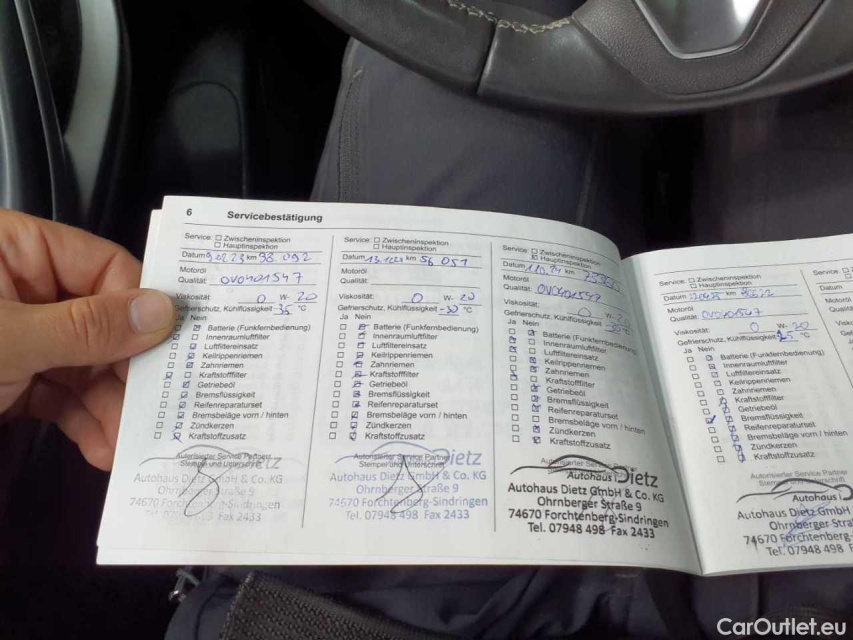 6 Servicebestätigung
Service: ☐ Zwischeninspektion
☐ Hauptinspektion
km 38.092
Motoröl
Qualität: 0V0401547
Viskosität: 0 W- 20
Gefrierschutz, Kühlflüssigkeit -35 °C
Ja Nein
Batterie (Funkfernbedienung)
Innenraumluftfilter
Luftfiltereinsatz
Keilrippenriemen
Zahnriemen
Kraftstofffilter
Getriebeöl
Bremsflüssigkeit
Reifenreparaturset
Bremsbeläge vorn / hinten
Zündkerzen
Kraftstoffzusatz
Autorisierter Service Partner
Stempel und Unterschrift
Autohaus Dietz GmbH & Co. KG
Ohrnberger Straße 9
74670 Forchtenberg-Sindringen
Fax 2433
Service: ☐ Zwischeninspektion
☐ Hauptinspektion
Datum km 56 051
Motoröl
Qualität:
Viskosität: 0 W- 20
Gefrierschutz, Kühlflüssigkeit -30 °C
Ja Nein
Batterie (Funkfernbedienung)
Innenraumluftfilter
Luftfiltereinsatz
Keilrippenriemen
Zahnriemen
Kraftstofffilter
Getriebeöl
Bremsflüssigkeit
Reifenreparaturset
Bremsbeläge vorn / hinten
Zündkerzen
Kraftstoffzusatz
Autorisierter Service Partner
Stempel und Unterschrift
Dietz
Autohaus Dietz GmbH & Co. KG
Ohrnberger Straße 9
74670 Forchtenberg-Sindringen
Tel. 07948 498 Fax 2433
Service: ☐ Zwischeninspektion
Hauptinspektion
Datum km
Motoröl
Qualität: 0V0401547
Viskosität: 0 W-
Gefrierschutz, Kühlflüssigkeit
Ja Nein
Batterie (Funkfernbedienung)
Innenraumluftfilter
Luftfiltereinsatz
Keilrippenriemen
Zahnriemen
Kraftstofffilter
Getriebeöl
Bremsflüssigkeit
Reifenreparaturset
Bremsbeläge vorn / hinten
Zündkerzen
Kraftstoffzusatz
Autorisierter Service
Autohaus Dietz
Autohaus Dietz GmbH & Co. KG
Ohrnberger Straße 9
74670 Forchtenberg-Sindringen
Tel. 07948 498 Fax 2433
Service: ☐ Zwischeninspektion
☐ Hauptinspektion
Datum km
Motoröl
Qualität: 0V0401547
Viskosität: 0 W- 20
Gefrierschutz, Kühlflüssigkeit °C
Ja Nein
Batterie (Funkfernbedienung)
Innenraumluftfilter
Luftfiltereinsatz
Keilrippenriemen
Zahnriemen
Kraftstofffilter
Getriebeöl
Bremsflüssigkeit
Reifenreparaturset
Bremsbeläge vorn / hinten
Zündkerzen
Kraftstoffzusatz
Autorisierter Service Partner
Autohaus
Autohaus Dietz GmbH
Ohrnberger Straße
74670 Forchtenberg-
Tel. 07948 498
Service:
Datum
Motoröl
Qualität:
Viskosität:
Gefrierschutz
Ja
CarOutlet.eu